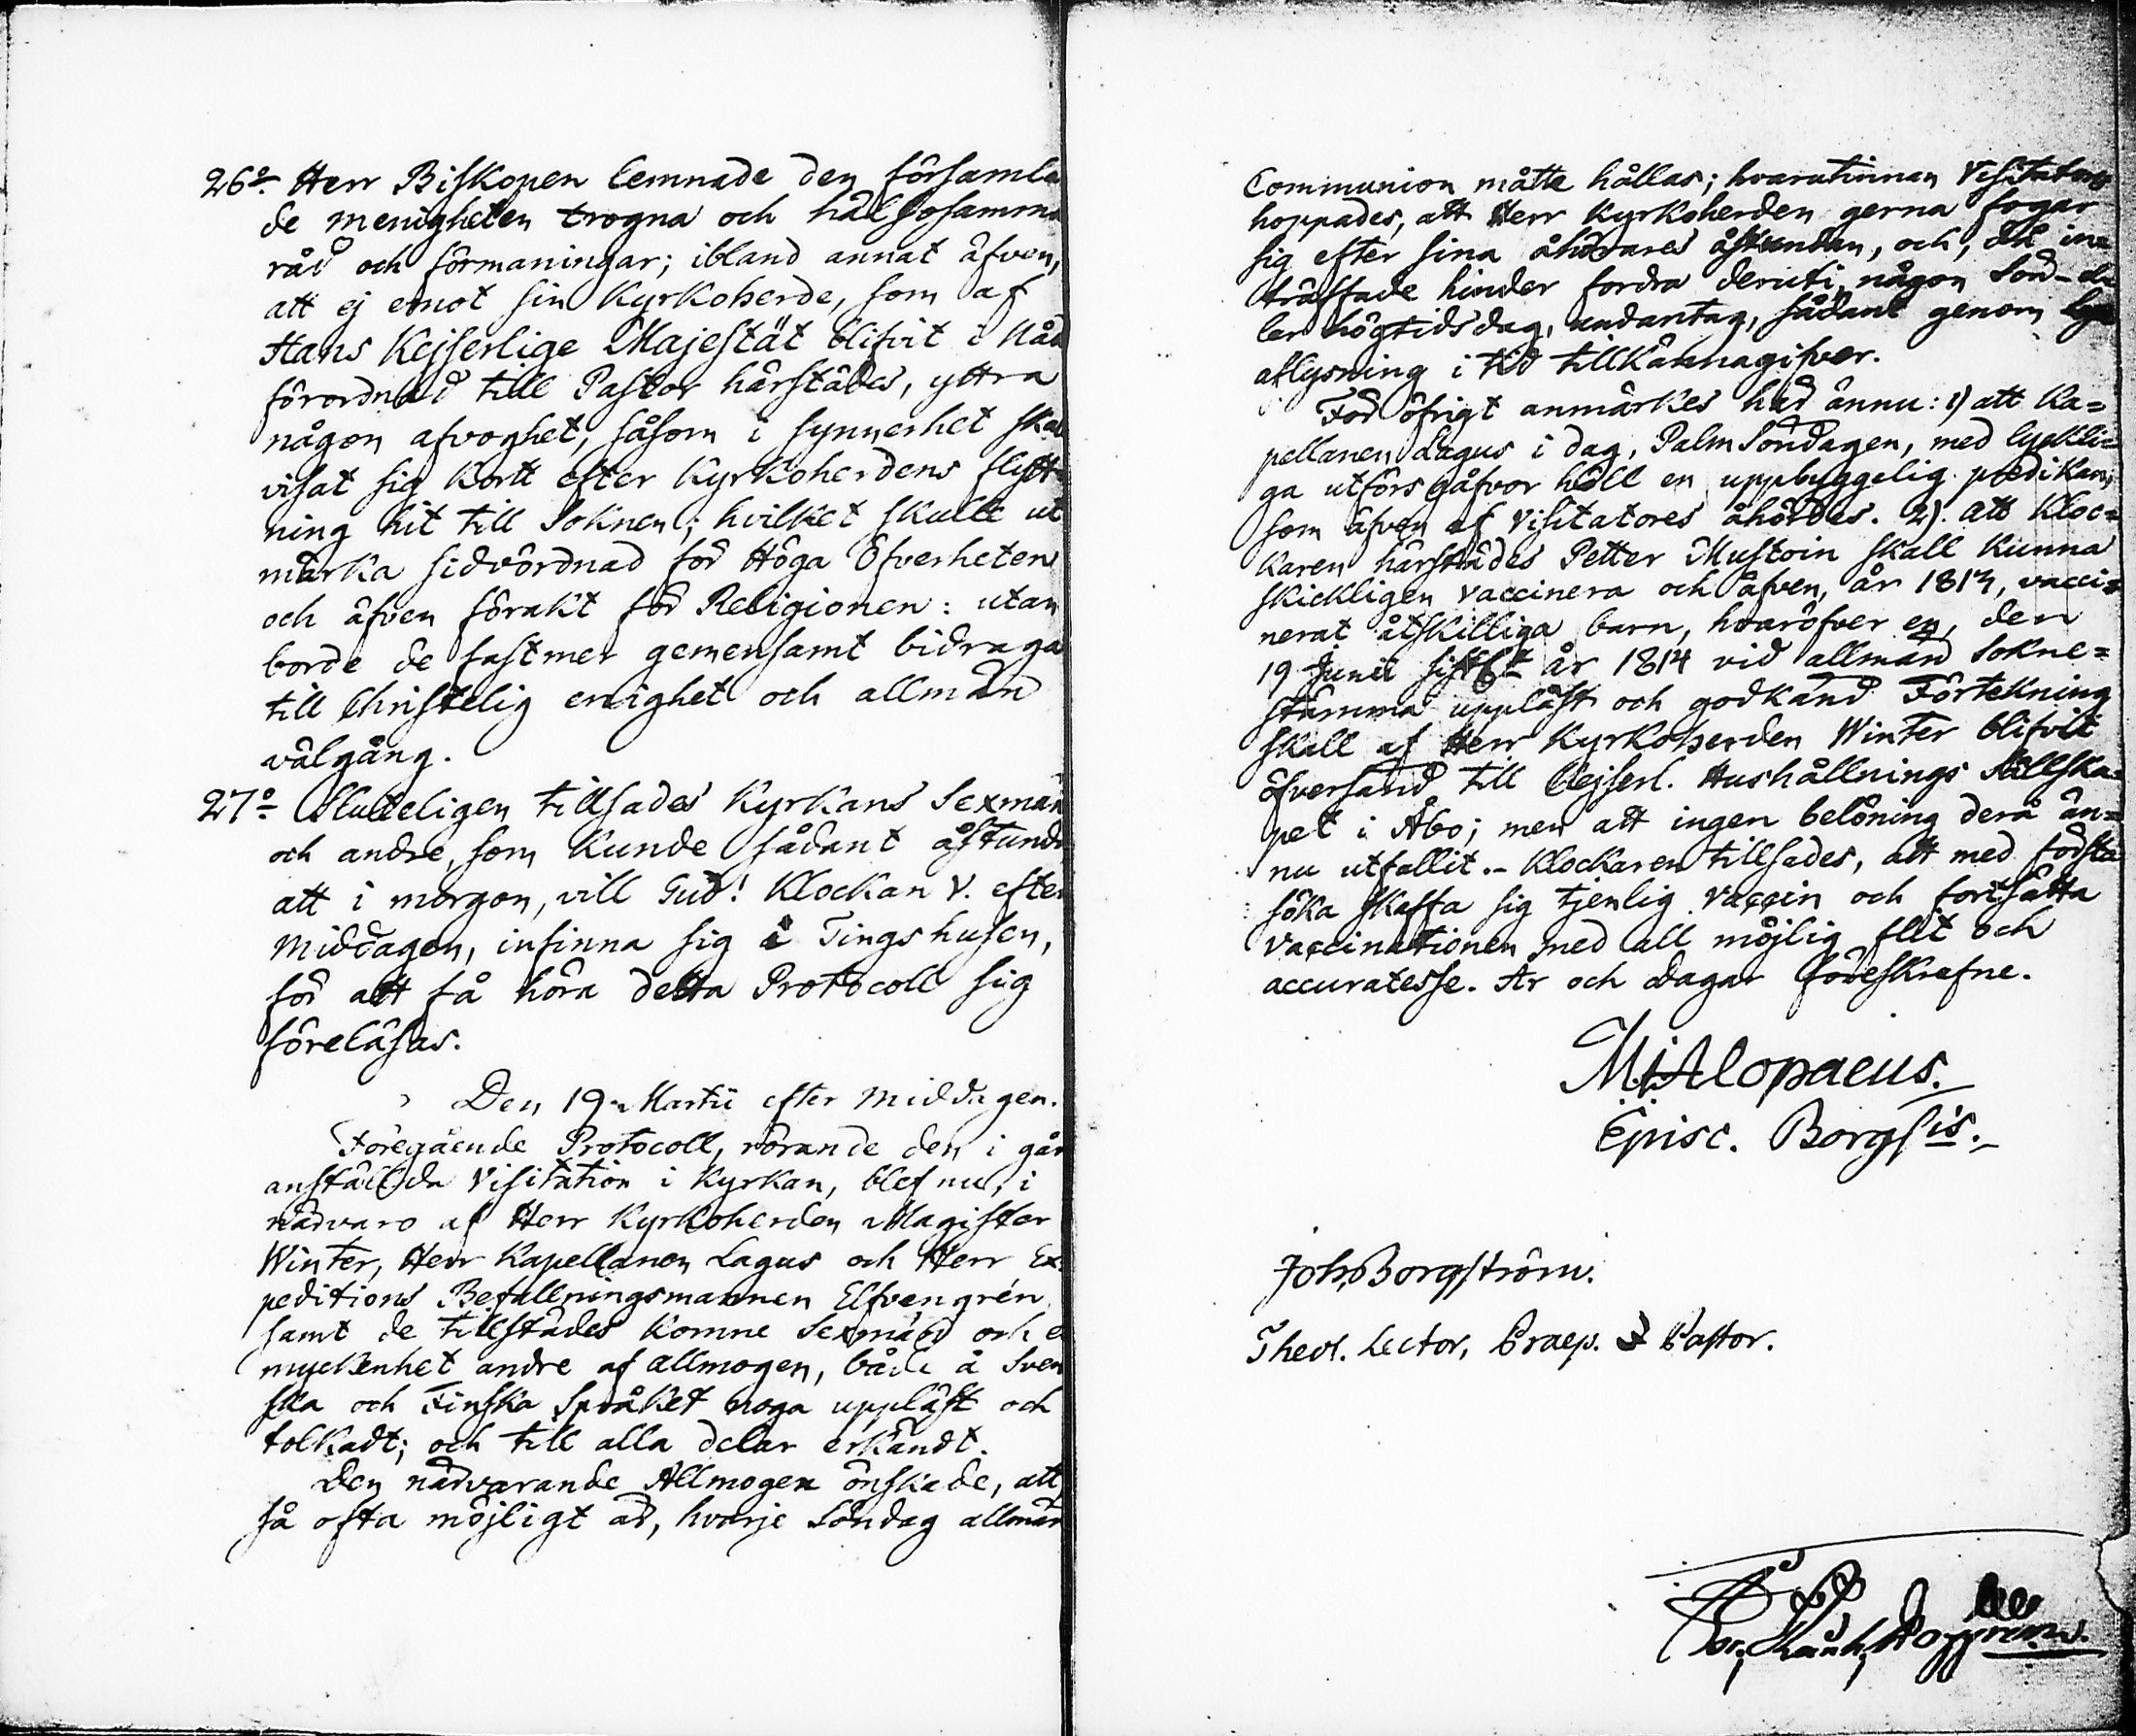 26:o Herr Biskopen lemnade den församla
de menigheten trogna och hälsosamma
råd och förmaningar; ibland annat äfven,
att ej emot sin Kyrkoherde, som af
Hans Kejserlige Majestät blifvit i Nåd
förordnad till Pastor härstädes, yttra
någon afvoghet, såsom i synnerhet skal
visat sig kort efter Kyrkoherdens flytt=
ning hit till Soknen; hvilket skulle ut
märka sidvördnad för Höga Öfverheten
och äfven förakt för Religionen: utan
borde de fastmer gemensamt bidraga
till Christelig enighet och allmän
välgång.
27:o Sluteligen tillsades Kyrkans Sexmän
och andre, som kunde sådant åstunda
att i morgon, vill Gud! Klockan V. efter
Middagen, infinna sig i Tingshusen,
för att få höra detta Protocoll sig
föreläsas.
Den 19 Martii efter Middagen.
Föregående Protocoll, rörande den i går
anställda Visitation i Kyrkan, blef nu, i
närvaro af Herr Kyrkoherden Magister
Winter, Herr Kapellanen Lagus och Herr Ex
peditions Befallningsmannen Elfvengrén
samt de tillstädes komne Sexmän och e
myckenhet andre af allmogen, både å Sven
ska och Finska Språket noga uppläst och
tolkadt; och till alla delar erkändt.
Den närvarande Allmogen önskade, att
så ofta möjligt är, hvarje Söndag allmän
Communion måtte hållas; hvarutinnan Visitatores
hoppades, att Herr Kyrkoherden gerna fogar
sig efter sina åhörares åstundan, och, då in=
träffade hinder fordra deruti någon Sön- el=
ler högtidsdag, undantag, sådant genom
aflysning i tid tillkännagifver.
För öfrigt anmärkes här ännu: 1) att Ka=
pellanen Lagus i dag, Palm Söndagen, med lyckli=
ga utförs gåfvor höll en uppbyggelig predikan,
som äfven af Visitatores åhördes. 2). att Kloc=
karen härstädes Petter Mustoin skall kunna
skickligen vaccinera och äfven, år 1813, vacci=
nerat åtskilliga barn, hvaröfver en, den
19 Junii sistl. år 1814 vid allmän Sokne=
stämma uppläst och godkänd Förtekning
skall af Herr Kyrkoherden Winter blifvit
öfversänd till Kejserl. Hushållnings Sällska=
pet i Åbo; men att ingen belöning derå än=
nu utfallit.- Klockaren tillsades, att med första
söka skaffa sig tjenlig Vaccin och fortsätta
vaccinationen med all möjlig flit och
accuratesse. År och dagar föreskrefne.
M. Alopaeus.
Episc. Borgsis.
Joh. Borgström.
Theol. Lector, Praep. & Pastor.